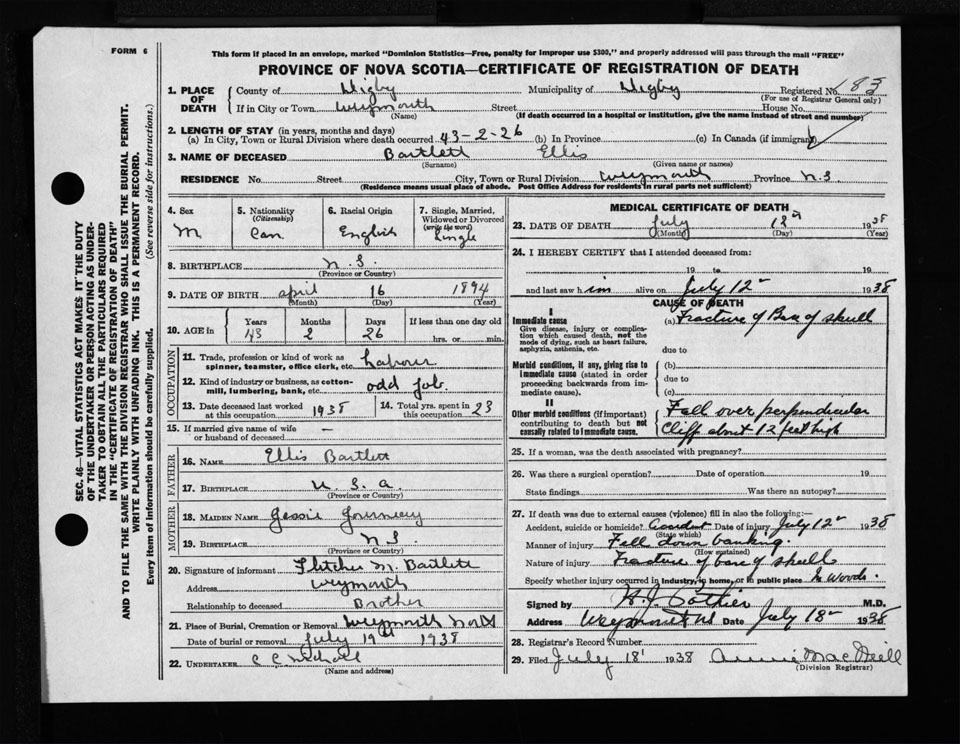 FORM 6
This form if placed in an envelope, marked "Dominion Statistics—Free, penalty for improper use $300," and properly addressed will pass through the mail "FREE"
PROVINCE OF NOVA SCOTIA—CERTIFICATE OF REGISTRATION OF DEATH
1. PLACE OF DEATH County of Digby Municipality of Digby Registered No. 183
(For use of Registrar General only)
If in City or Town Weymouth Street House No.
(Name) (If death occurred in a hospital or institution, give the name instead of street and number)
2. LENGTH OF STAY (in years, months and days)
(a) In City, Town or Rural Division where death occurred 43-2-26 (b) In Province (c) In Canada (if immigrant)
3. NAME OF DECEASED Bartlett Ellis
(Surname) (Given name or names)
RESIDENCE No. Street City, Town or Rural Division Weymouth Province N.S
(Residence means usual place of abode. Post Office Address for residents in rural parts not sufficient)
4. Sex M
5. Nationality (Citizenship) Can
6. Racial Origin English
7. Single, Married, Widowed or Divorced (write the word) Single
8. BIRTHPLACE N.S.
(Province or Country)
9. DATE OF BIRTH April 16 1894
(Month) (Day) (Year)
10. AGE in Years Months Days If less than one day old
43 2 26 hrs. or min.
OCCUPATION
11. Trade, profession or kind of work as spinner, teamster, office clerk, etc. Labour
12. Kind of industry or business, as cotton-mill, lumbering, bank, etc. odd job.
13. Date deceased last worked at this occupation 1938
14. Total yrs. spent in this occupation 23
15. If married give name of wife or husband of deceased —
FATHER
16. NAME Ellis Bartlett
17. BIRTHPLACE U.S.A
(Province or Country)
MOTHER
18. MAIDEN NAME Jessie
19. BIRTHPLACE N.S.
(Province or Country)
20. Signature of informant Fletcher M. Bartlett
Address Weymouth
Relationship to deceased Brother
21. Place of Burial, Cremation or Removal Weymouth North
Date of burial or removal July 19th 1938
22. UNDERTAKER C C
(Name and address)
MEDICAL CERTIFICATE OF DEATH
23. DATE OF DEATH July 12th 1938
(Month) (Day) (Year)
24. I HEREBY CERTIFY that I attended deceased from:
19 to 19
and last saw him alive on July 12th 1938
CAUSE OF DEATH
I
Immediate cause (a) Fracture of Base of skull
Give disease, injury or complication which caused death, not the mode of dying, such as heart failure, asphyxia, asthenia, etc.
due to
Morbid conditions, if any, giving rise to immediate cause (stated in order proceeding backwards from immediate cause).
(b)
due to
(c)
II
Other morbid conditions (if important) contributing to death but not causally related to immediate cause.
Fell over perpendicular
Cliff about 12 feet high
25. If a woman, was the death associated with pregnancy?
26. Was there a surgical operation? Date of operation 19
State findings Was there an autopsy?
27. If death was due to external causes (violence) fill in also the following:—
Accident, suicide or homicide? Accident Date of injury July 12th 1938
(State which)
Manner of injury Fell down banking.
(How sustained)
Nature of injury Fracture of base of skull
Specify whether injury occurred in industry, in home, or in public place In Woods.
Signed by Pothier M.D.
Address Weymouth NS Date July 18th 1938
28. Registrar's Record Number
29. Filed July 18 1938 Annie MacNeill
(Division Registrar)
SEC. 46—VITAL STATISTICS ACT MAKES IT THE DUTY
OF THE UNDERTAKER OR PERSON ACTING AS UNDER-
TAKER TO OBTAIN ALL THE PARTICULARS REQUIRED
IN THE "CERTIFICATE OF REGISTRATION OF DEATH"
AND TO FILE THE SAME WITH THE DIVISION REGISTRAR WHO SHALL ISSUE THE BURIAL PERMIT.
WRITE PLAINLY WITH UNFADING INK. THIS IS A PERMANENT RECORD.
Every item of information should be carefully supplied. (See reverse side for instructions.)